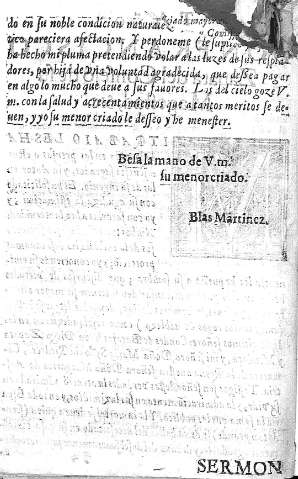 do en su noble condicion natural
vico pareciera afectacion. Y perdoneme (le suplico
ha hecho mi pluma pretendiendo volar a las luzes de sus resplā-
dores, por hija de vna voluntad agradecida, que dessea pagar
en algo lo mucho que deue a sus fauores. Los del cielo goze V.
m. con la salud y acrecentamientos que a tantos meritos se de-
uen, y yo su menor criado le desseo y he menester.
Besa la mano de V. m.
su menor criado.
Blas Martinez.
SERMON